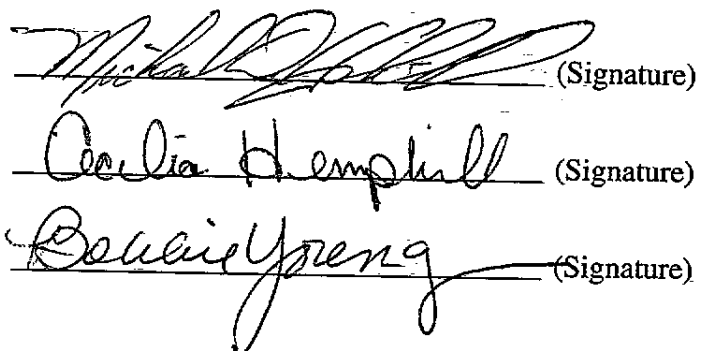 Michael (Signature)
Cecilia Hemphill (Signature)
Bobbie Young (Signature)